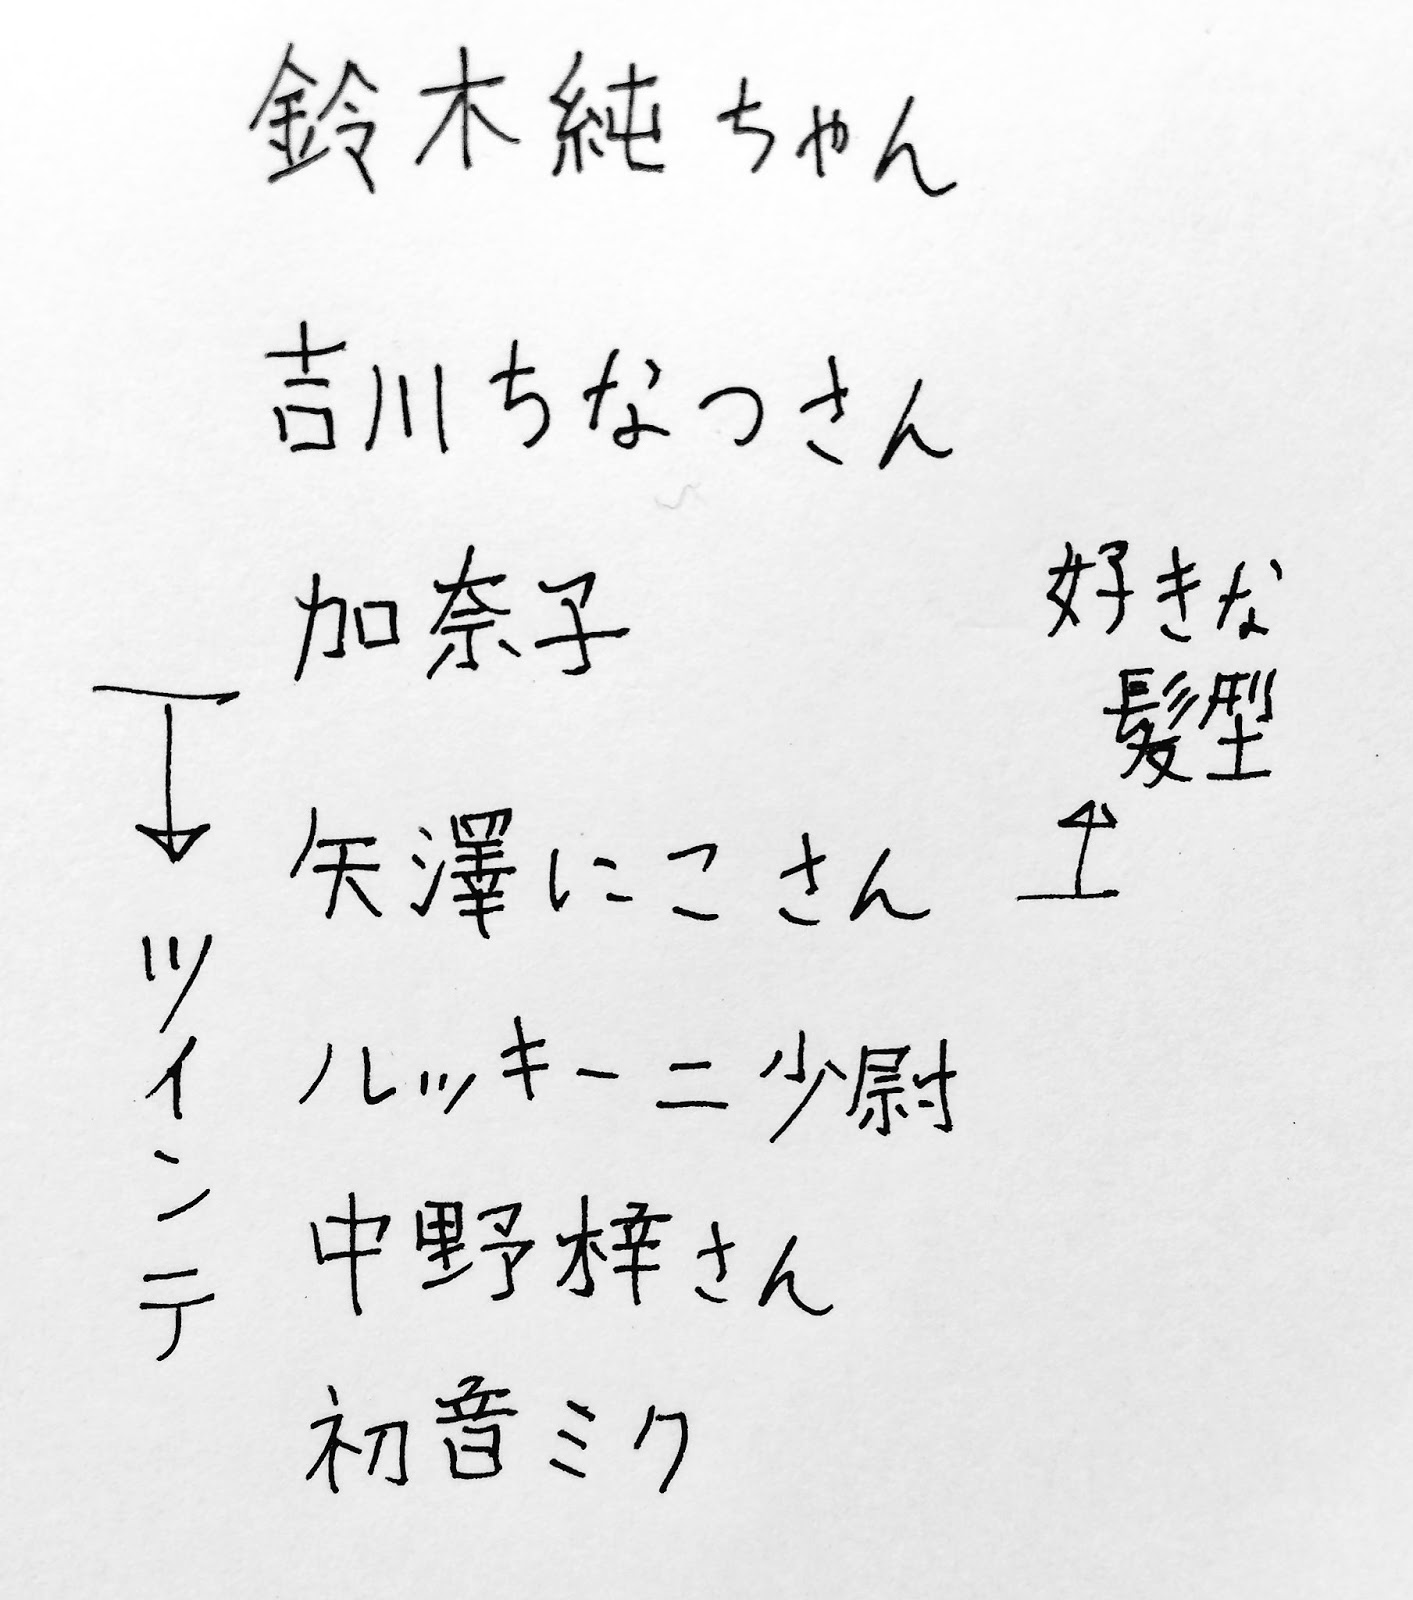 鈴木純ちゃん
吉川ちなつさん
加奈子
好きな
髪型
矢澤にこさん
ルッキーニ少尉
中野梓さん
初音ミク
ツインテ